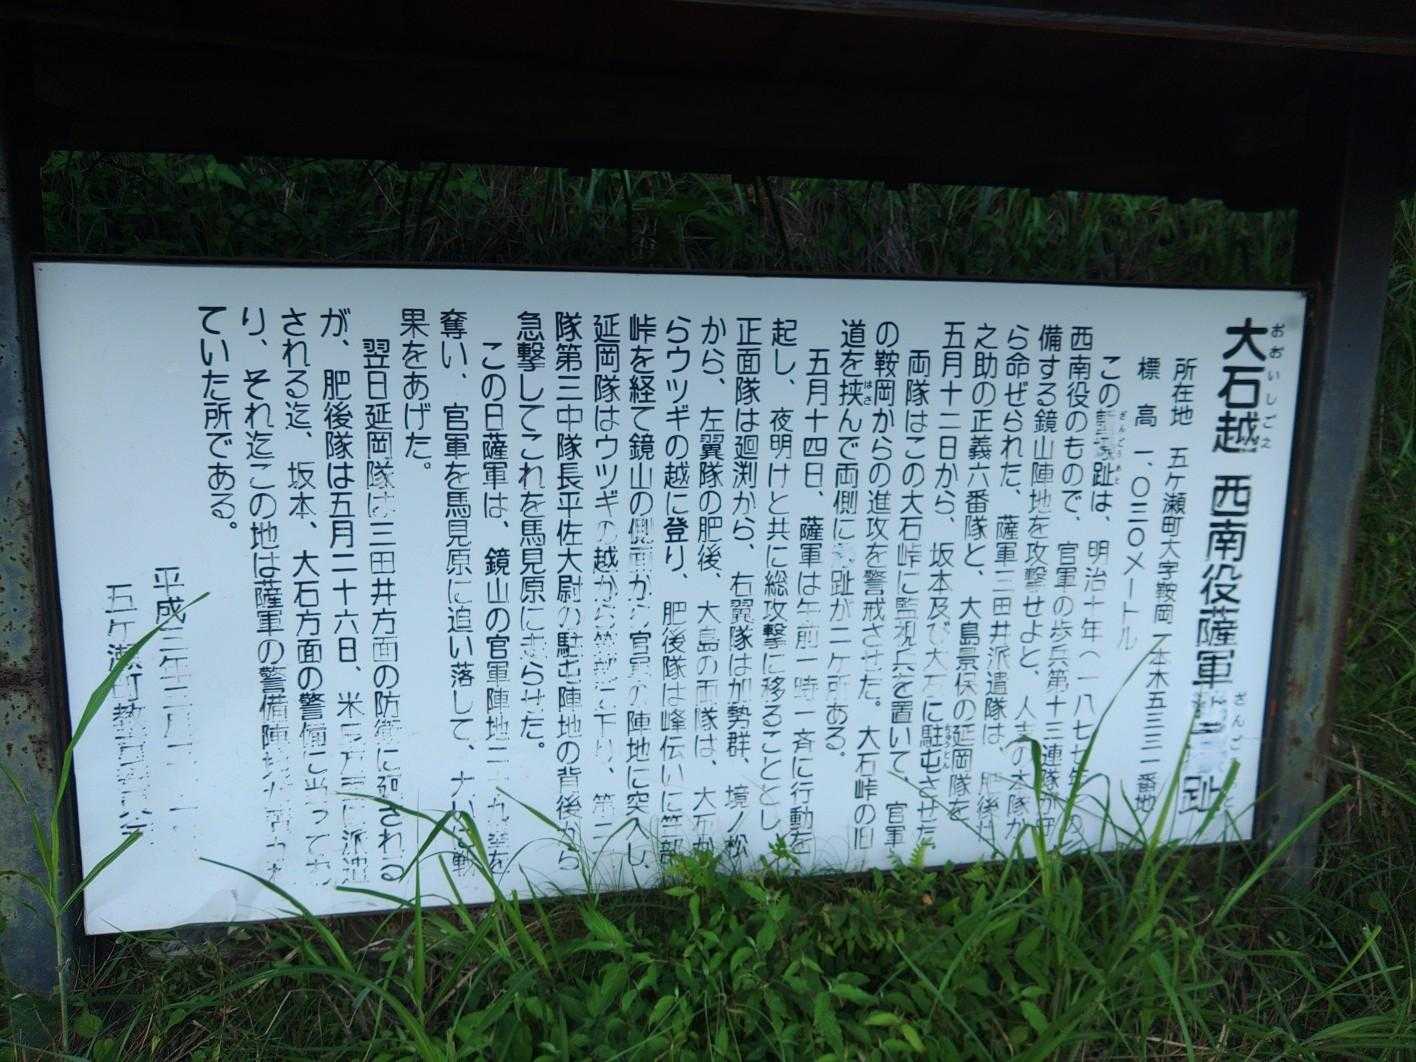 大石越 西南役薩軍塹壕趾
おおいしごえ
所在地 五ケ瀬町大字鞍岡
標 高 一、〇三〇メートル
この塹壕趾は、明治十年(一八七七年)の
ざんごうあと
西南役のもので、官軍の歩兵第十三連隊が守
備する鏡山陣地を攻撃せよと、人吉の本隊か
ら命ぜられた、薩軍三田井派遣隊は、肥後
之助の正義六番隊と、大島景保の延岡隊を
五月十二日から、坂本及び大石に駐屯させた
ちゅうとん
両隊はこの大石峠に監視兵を置いて、官軍
の鞍岡からの進攻を警戒させた。大石峠の旧
道を挟んで両側に 趾が二ケ所ある。
はさ
五月十四日、薩軍は午前一時一斉に行動を
起し、夜明けと共に総攻撃に移ることとし
正面隊は廻渕から、右翼隊は加勢群、境ノ松
から、左翼隊の肥後、大島の両隊は、大石か
らウツギの越に登り、肥後隊は峰伝いに竺部
峠を経て鏡山の側面から官軍の陣地に突入し
延岡隊はウツギの越から竺部に下り、第二
隊第三中隊長平佐大尉の駐屯陣地の背後から
急撃してこれを馬見原に走らせた。
この日薩軍は、鏡山の官軍陣地二十九塁を
奪い、官軍を馬見原に追い落して、大いに戦
果をあげた。
翌日延岡隊は三田井方面の防衛に廻される
が、肥後隊は五月二十六日、米良方面に派遣
される迄、坂本、大石方面の警備に当ってお
り、それ迄この地は薩軍の警備陣地が置かれ
ていた所である。
平成三年三月
五ケ瀬町教育委員会